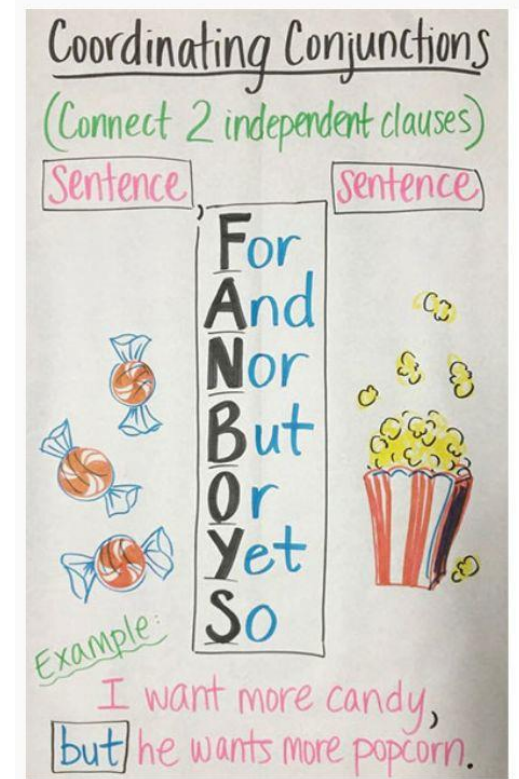 Coordinating Conjunctions
(Connect 2 independent clauses)
Sentence, sentence
For
And
Nor
But
Or
Yet
So
Example:
I want more candy,
but he wants more popcorn.